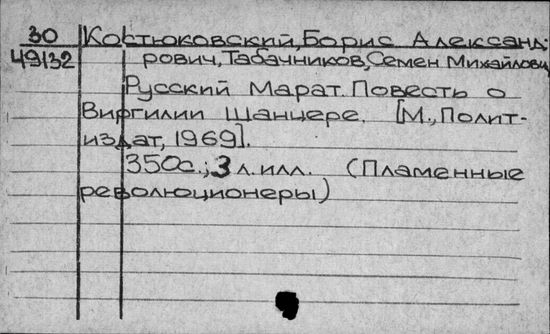 30 Костюковский, Борис Александ-
49132 рович, Табачников, Семен Михайлович
Русский Марат. Повесть о
Виргилии Шанцере. [М., Полит-
издат, 1969].
350с.; 3 л. илл. (Пламенные
революционеры)